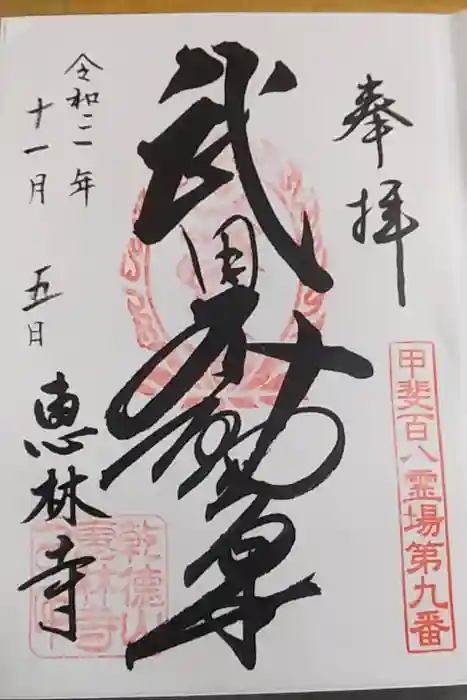 奉拝
甲斐百八霊場第九番
武田不動尊
令和二年
十一月 五日
恵林寺
乾徳山
恵林寺